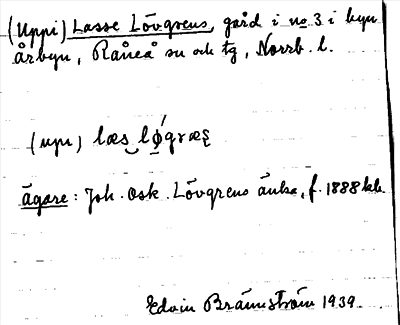 (Uppi) Lasse Lövgrens, gård i no 3 i byn
Årbyn, Råneå sn och tg, Norrb. l.
(upi) læs l
ägare: Joh. Osk. Lövgrens änka, f. 1888
Edvin Brännström 1939.